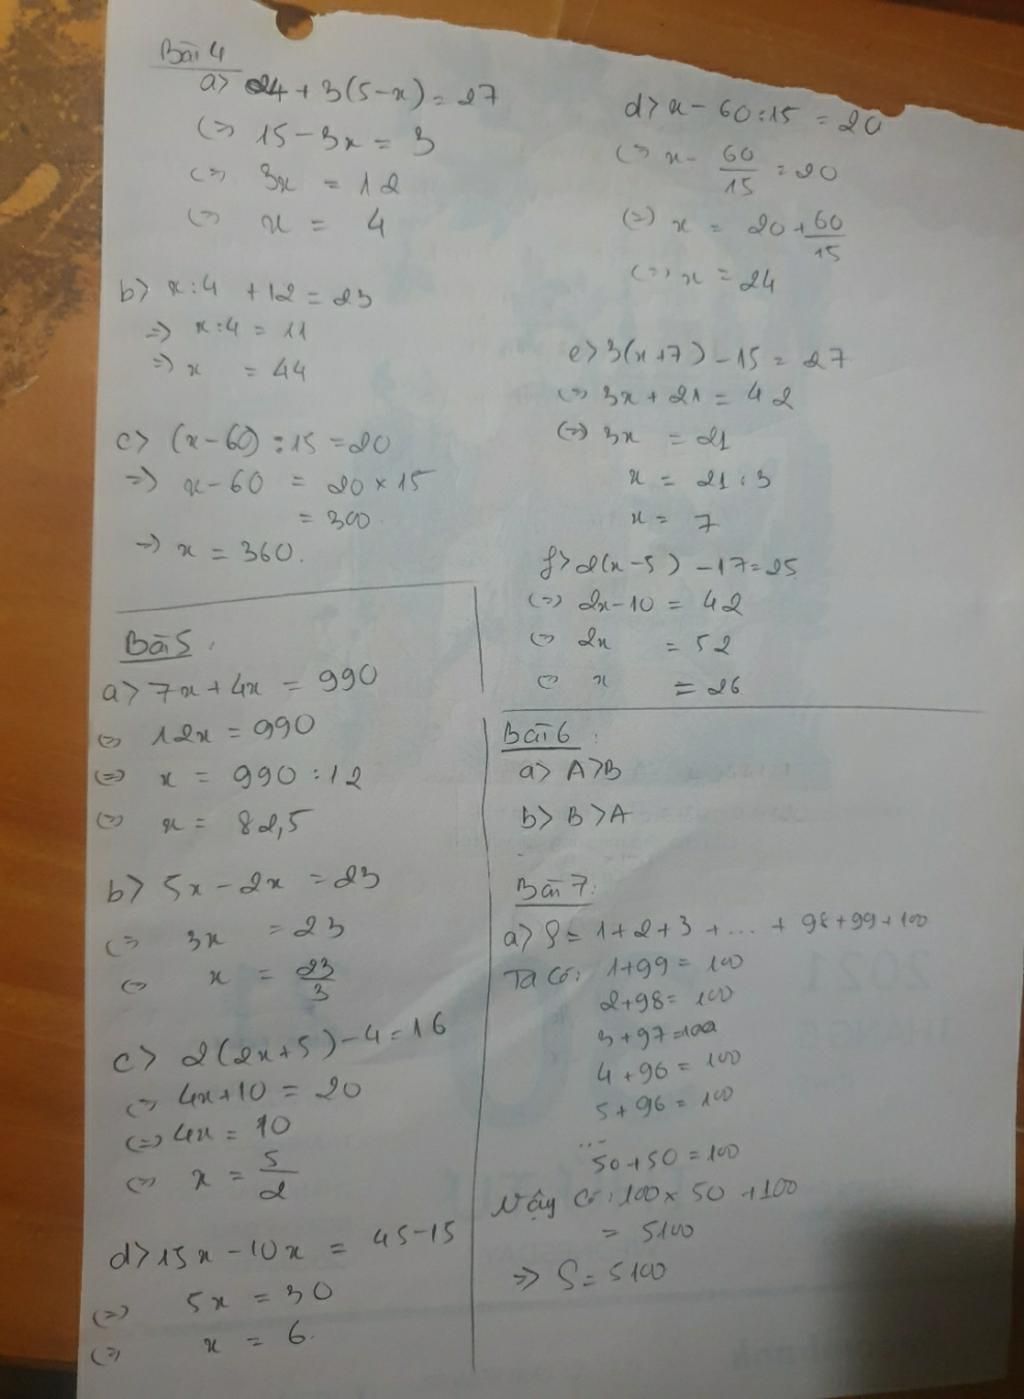 Bài 4
a> 24 + 3(5-x) = 27
<=> 15 - 3x = 3
<=> 3x = 12
<=> x = 4
b> x:4 + 12 = 23
=> x:4 = 11
=> x = 44
c> (x-60) : 15 = 20
=> x-60 = 20 × 15
= 300
=> x = 360.
d> x - 60:15 = 20
<=> x - 60/15 = 20
<=> x = 20 + 60/15
<=> x = 24
e> 3(x+7) - 15 = 27
<=> 3x + 21 = 42
<=> 3x = 21
x = 21 : 3
x = 7
f> 2(x-5) - 17 = 25
<=> 2x - 10 = 42
<=> 2x = 52
<=> x = 26
Bài 5 :
a> 7x + 4x = 990
<=> 12x = 990
<=> x = 990 : 12
<=> x = 82,5
b> 5x - 2x = 23
<=> 3x = 23
<=> x = 23/3
c> 2(2x+5) - 4 = 16
<=> 4x + 10 = 20
<=> 4x = 10
<=> x = 5/2
d> 15x - 10x = 45-15
<=> 5x = 30
<=> x = 6.
Bài 6 :
a> A>B
b> B>A
Bài 7:
a> S = 1+2+3 + ... + 98+99+100
Ta có: 1+99 = 100
2+98 = 100
3+97=100
4+96 = 100
5+96 = 100
...
50+50 = 100
Vậy có: 100 × 50 + 100
= 5100
=> S = 5100